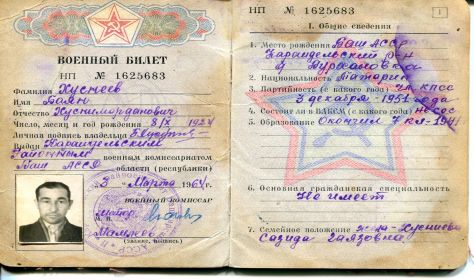 ВОЕННЫЙ БИЛЕТ
НП № 1625683
Фамилия Хуснеев
Имя Баян
Отчество Хуснимордanович
Число, месяц и год рождения 8/IX 1924
Личная подпись владельца
Выдан Караидельским
Районным военным комиссариатом
Баш АССР области (республики)
"3" Марта 1964 г.
ВОЕННЫЙ КОМИССАР
М. П. майор
(звание, подпись)
НП № 1625683
1
I. Общие сведения
1. Место рождения Баш АССР
Караидельский р-он
2. Национальность Татарин
3. Партийность (с какого года) чл. КПСС
3 декабря 1951 года
4. Состоит ли в ВЛКСМ (с какого года)
5. Образование Окончил 7 кл-1941
6. Основная гражданская специальность
Не имеет
7. Семейное положение ж-на-Хуснеева
Сазида Гаязовна